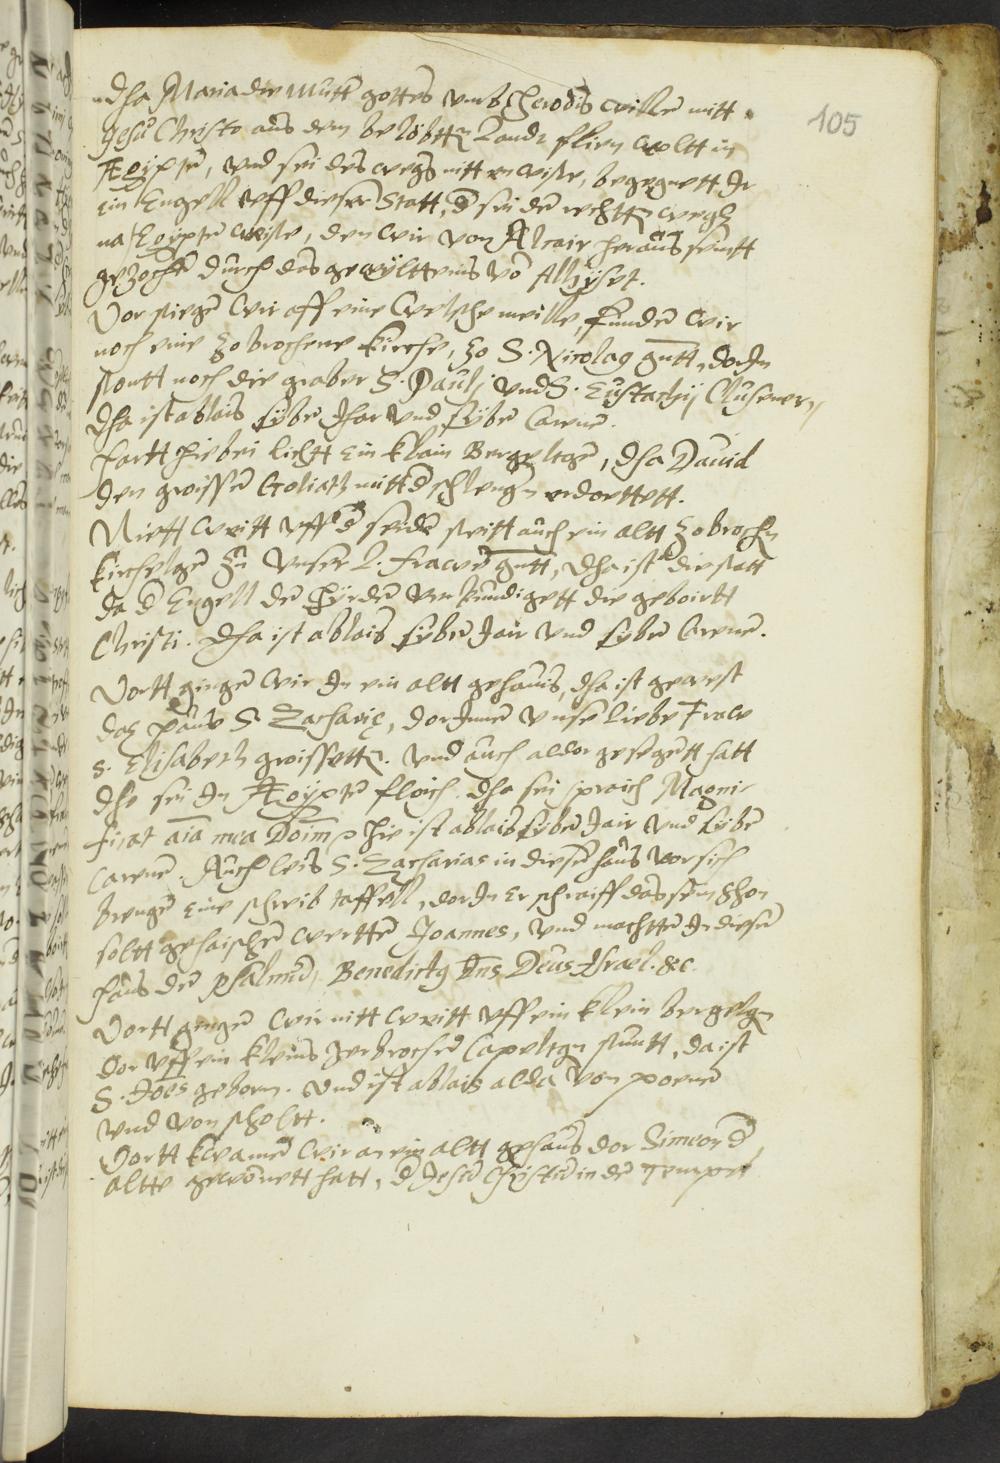 105
dha Maria die Mutter gottes umb herodis wille mitt
Jesu Christo aus dem belobtten Lande flien woltt in
Ægipten, und sei des wegs nitt en wiste, begegnett Ir
ein Engell uff dieser Statt, der sei den rechtten wegh
na Egipten wiste, den wir von Alcair heraus seintt
gezochen durch das gewyltternis von Alhyset.
Vor stiegen wir aff eine Welsche meille, funden wir
noch eine zobrochene kirche, zo S. Nicolaq gntt, do In
stontt noch die graber S. Pauli und S. Eustachij Clusener,
dha ist ablais syben Jhar und syben Carene.
hartt hie bei lichtt ein klain Bergeltgen, dha David
den groissen Goliath mitt der schlengen erdoettett.
Niett witt uff der seiden steitt auch ein altt zobrochen
kircheltgen zu unser L. frawen gntt, dha ist die statt
da der Engell den hyrden verkundigett die geboirtt
Christi. Dha ist ablais syben Jair und syben Carene.
Vortt gingen wir In ein altt gehauis, dha ist gewest
das haus S. Zachariæ, dor Innen unse liebe Fraw
S. Elisabeth groissette. und auch aldor gesegentt hatt
dhe sei In Ægipten floich. dha sei sproich Magni-
ficat aīa mea Doīm ꝛ hie ist ablais syben Jair und syben
Carene. Auch leis S. Zacharias in diesem haus vor sich
brengen eine schreib taffell, dor In Er schraiff das sein Shon
soltt gehaischen werten Joannes, und machtte In diesem
haus den Psalmen, Benedictq Dns Deus Israel. &c.
Vortt gingen wir nitt witt uff ein klein bergelgen
dor uff ein kleins zerbrochen Capeltgen stuntt, da ist
S. Joēs geboren. und ist ablais alda von poenen
und von scholtt.
Vortt kwamen wir an ein altt gehaus dor Simeon der
altte gewonett hatt, der Jesum Christum in den Tempel